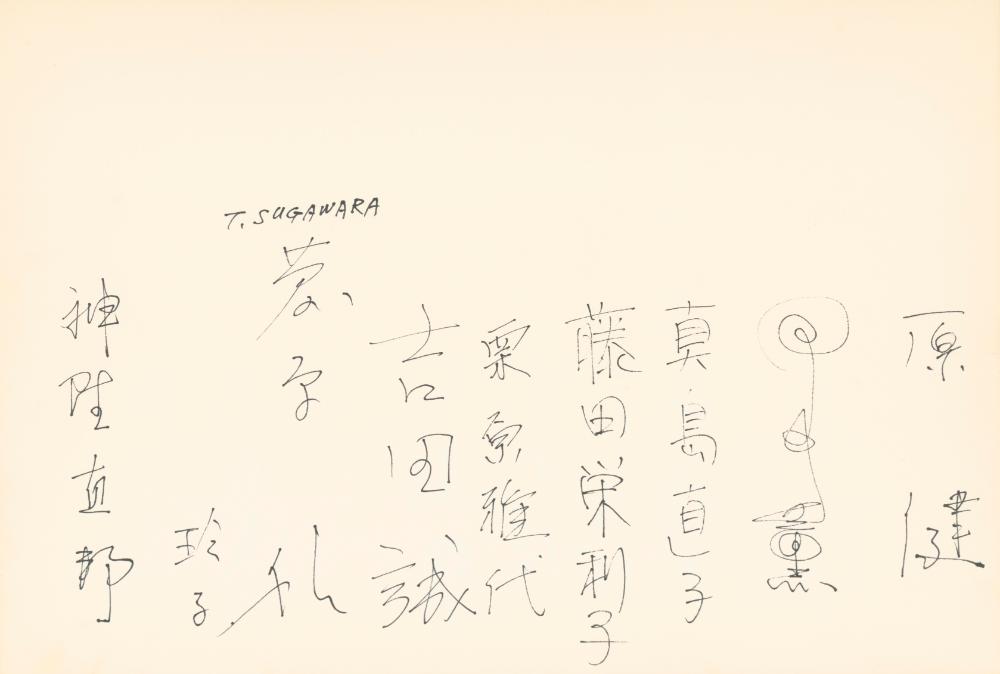 原 健
薫
真島直子
藤田栄利子
栗原雅代
吉田 誠
T. SUGAWARA
玲子
神陛直邦